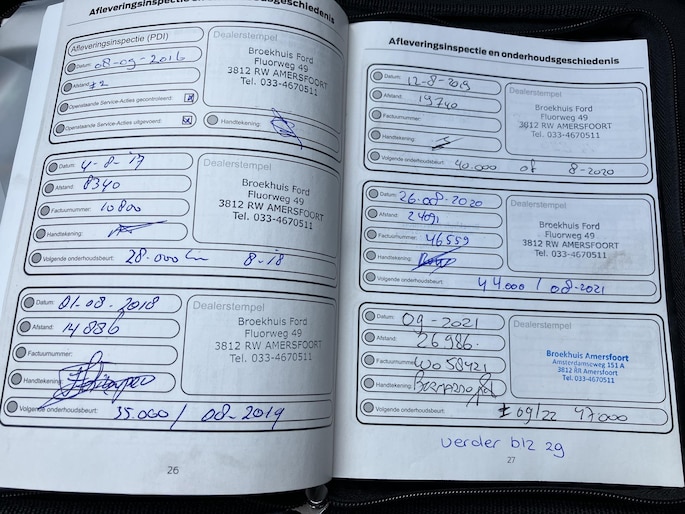 Afleveringsinspectie en onderhoudsgeschiedenis
Afleveringsinspectie (PDI)
Datum: 08-09-2016
Afstand:
Openstaande Service-Acties gecontroleerd:
Openstaande Service-Acties uitgevoerd:
Dealerstempel
Broekhuis Ford
Fluorweg 49
3812 RW AMERSFOORT
Tel. 033-4670511
Handtekening:
Datum: 4-8-'17
Afstand: 8340
Factuurnummer: 10800
Handtekening:
Dealerstempel
Broekhuis Ford
Fluorweg 49
3812 RW AMERSFOORT
Tel. 033-4670511
Volgende onderhoudsbeurt: 28.000 km 8-18
Datum: 01-08-2018
Afstand: 14886
Factuurnummer:
Handtekening:
Dealerstempel
Broekhuis Ford
Fluorweg 49
3812 RW AMERSFOORT
Tel. 033-4670511
Volgende onderhoudsbeurt: 35.000 / 08-2019
26
Afleveringsinspectie en onderhoudsgeschiedenis
Datum: 12-8-2019
Afstand: 19740
Factuurnummer:
Handtekening:
Dealerstempel
Broekhuis Ford
Fluorweg 49
3812 RW AMERSFOORT
Tel. 033-4670511
Volgende onderhoudsbeurt: 40.000 of 8-2020
Datum: 26-08-2020
Afstand: 24091
Factuurnummer: 46559
Handtekening:
Dealerstempel
Broekhuis Ford
Fluorweg 49
3812 RW AMERSFOORT
Tel. 033-4670511
Volgende onderhoudsbeurt: 44000 / 08-2021
Datum: 09-2021
Afstand: 26986.
Factuurnummer: WO 58421
Handtekening:
Dealerstempel
Broekhuis Amersfoort
Amsterdamseweg 151 A
3812 RR Amersfoort
Tel. 033-4670511
Volgende onderhoudsbeurt: ± 09/22 47000
verder blz 29
27